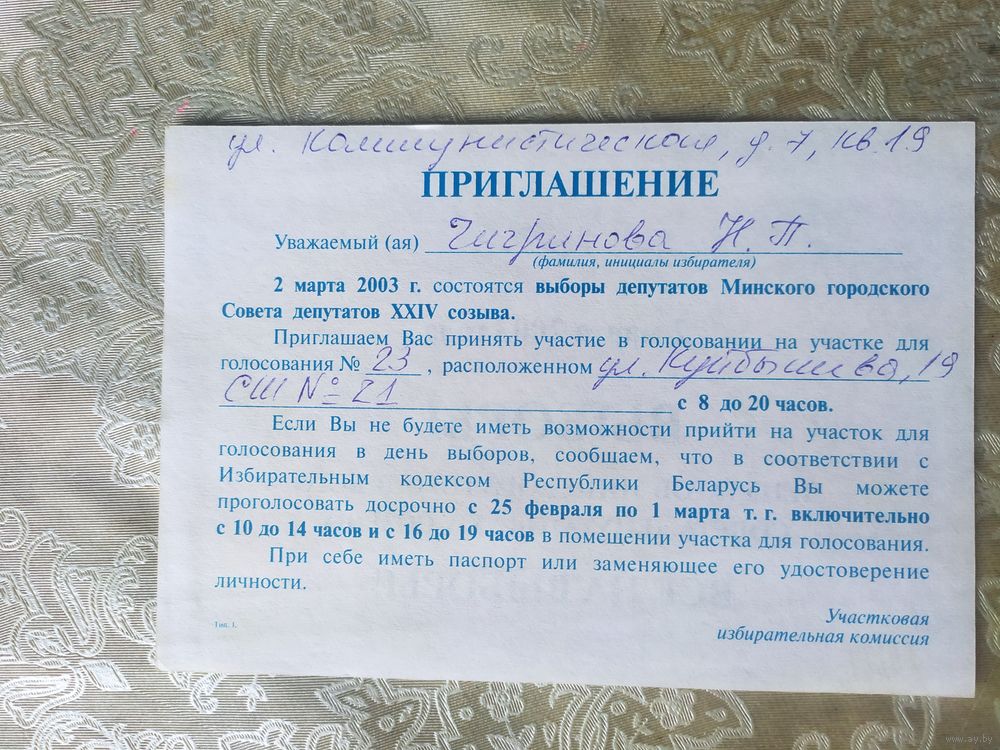 ул. Коммунистическая, д. 7, кв. 19
ПРИГЛАШЕНИЕ
Уважаемый (ая) Чигринова Н. П.
(фамилия, инициалы избирателя)
2 марта 2003 г. состоятся выборы депутатов Минского городского
Совета депутатов XXIV созыва.
Приглашаем Вас принять участие в голосовании на участке для
голосования № 23, расположенном ул. Куйбышева, 19
СШ № 21 с 8 до 20 часов.
Если Вы не будете иметь возможности прийти на участок для
голосования в день выборов, сообщаем, что в соответствии с
Избирательным кодексом Республики Беларусь Вы можете
проголосовать досрочно с 25 февраля по 1 марта т. г. включительно
с 10 до 14 часов и с 16 до 19 часов в помещении участка для голосования.
При себе иметь паспорт или заменяющее его удостоверение
личности.
Участковая
избирательная комиссия
Тип. 1.
www.ay.by